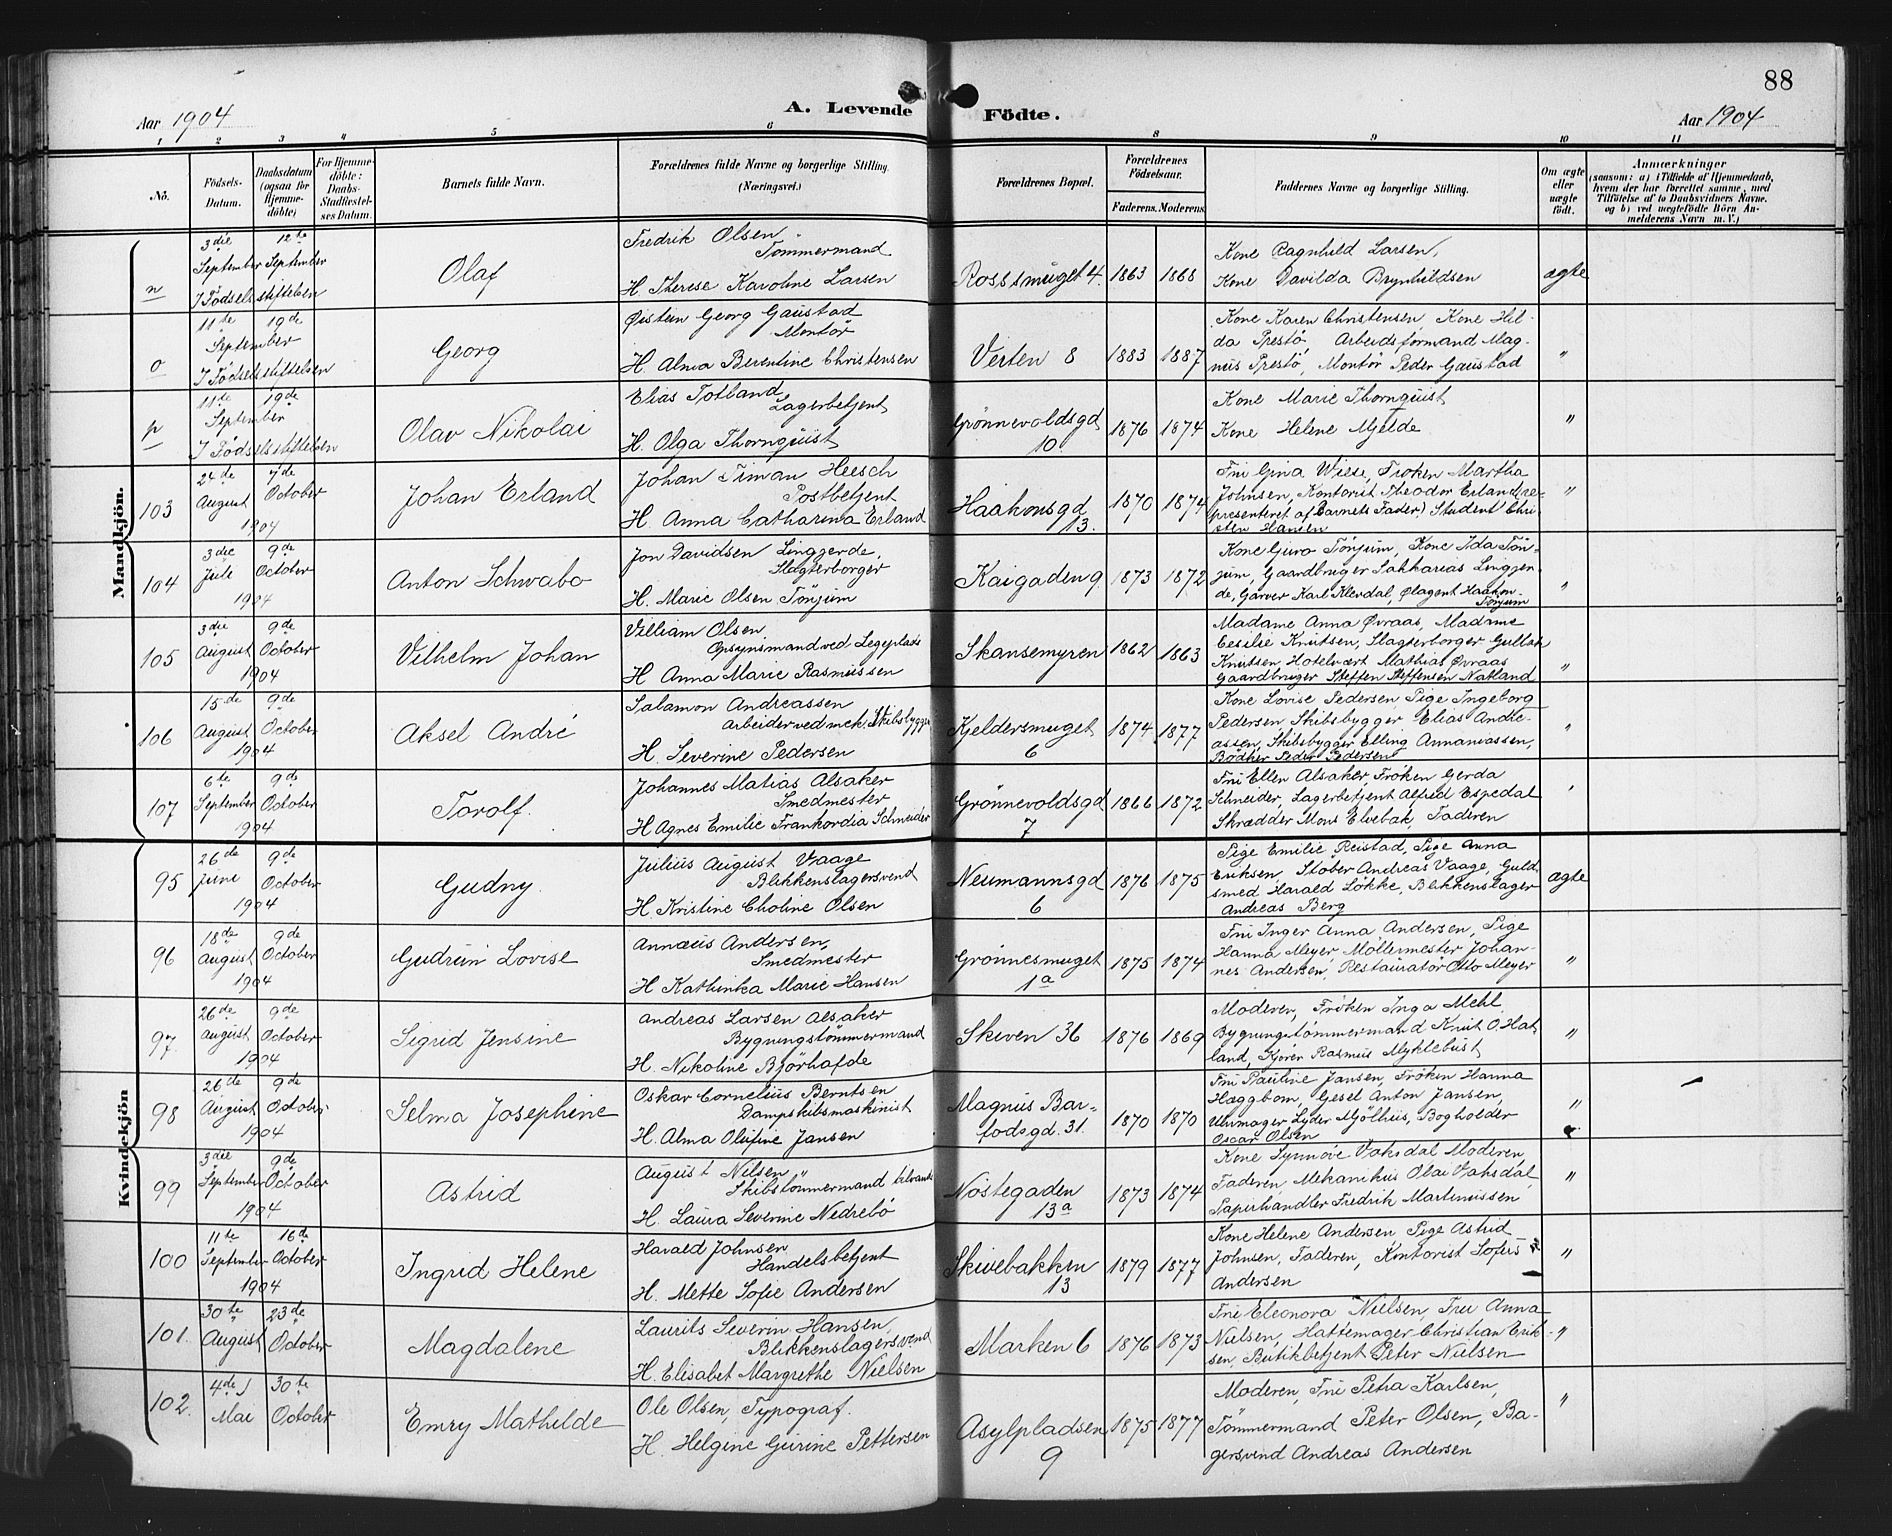 88
Aar 1904
A. Levende Födte.
Aar 1904
1 2 3 4 5 6 8 9 10 11
No.
Födsels-Datum.
Daabsdatum (ogsaa for Hjemmedöbte)
For Hjemmedöbte: Daabs-Stadfæstelses Datum.
Barnets fulde Navn.
Forældrenes fulde Navne og borgerlige Stilling. (Næringsvei.)
Forældrenes Bopæl.
Forældrenes Födselsaar.
Faderens. Moderens.
Faddernes Navne og borgerlige Stilling.
Om ægte eller uægte födt.
Anmærkninger
(saasom: a) i Tilfælde af Hjemmedaab, hvem der har forrettet samme, med Tilföielse af to Daabsvidners Navne. og b) ved uægtefödte Börn Anmelderens Navn m. V.)
Mandkjön.
n
3die September
12te September
I Födselsstiftelsen
Olaf
Fredrik Olsen
Tömmermand
H. Therese Karoline Larsen
Rossesmuget 4.
1863 1868
Kone Ragnhild Larsen,
Kone Davilda Brynhildsen
ægte
o
11te 19de
September
I Födselsstiftelsen
Georg
Øistein Georg Gaustad
Montör
H. Alma Berentine Christensen
Verten 8
1883 1887
Kone Karen Christensen Kone Hil-
da Prestö, Arbeidsformand Mag-
nus Prestö, Montör Peder Gaustad
"
p
11te 19de
September
I Födselsstiftelsen
Olav Nikolai
Elias Totland
Lagerbetjent
H. Olga Thornquist
Grönnevoldsgd
10.
1876 1874
Kone Marie Thornquist
Kone Helene Mjelde
"
103
24de August
7de October
1904
Johan Erland
Johan Timan Heesch
Postbetjent
H. Anna Catharina Erland
Haakonsgd
13.
1870 1874
Fru Gina Wiese, Fröken Martha
Johnsen, Kontorist Theodor Erland (re-
presenteret af Barnets Fader) Student Chri-
sten Hansen
"
104
3die Juli
9de October
1904
Anton Schwabo
Jon Davidsen Linggjerde,
Slagterborger
H. Marie Olsen Tönjum
Kaigaden 9.
1873 1872
Kone Guro Tönjum, Kone Ida Tön-
jum, Gaardbruger Sakkarias Linggjer-
de, Garver Karl Klevdal, Ølagent Haakon
Tönjum
"
105
3die August
9de October
1904
Vilhelm Johan
Villiam Olsen
Opsynsmand ved Legeplads
H. Anna Marie Rasmussen
Skansemyren
1862 1863
Madame Anna Øvraas, Madame
Cecilie Knutsen, Slagterborger Gullak
Knutsen, Hotelvært Mathias Øvraas
Gaardbruger Steffen Steffensen Natland
"
106
15de August
9de October
1904
Aksel André
Salamon Andreassen
arbeider ved mek. Skibsbygge
H. Severine Pedersen
Kjeldersmuget
6
1874 1877
Kone Lovise Pedersen, Pige Ingeborg
Pedersen Skibsbygger Elias Andre-
assen, Skibsbygger Elling Annaniassen,
Bödker Peder Pedersen
"
107
6te September
9de October
1904
Torolf
Johannes Matias Alsaker
Smedmester
H. Agnes Emilie Frankordia Schneider
Grönnevoldsgd
7
1866 1872
Fru Ellen Alsaker, Fröken Gerda
Schneider, Lagerbetjent Alfred Espedal
Skrædder Mons Elvebak, Faderen
"
Kvindekjön
95
26de Juni
9de October
1904
Gudny.
Julius August Vaage
Blikkenslagersvend
H. Kristine Choline Olsen
Neumannsgd
6
1876 1875
Pige Emilie Reistad, Pige Anna
Eriksen, Stöber Andreas Vaage, Guld-
smed Harald Lökke, Blikkenslager
Andreas Berg
ægte
96
18de August
9de October
1904
Gudrun Lovise
Annæus Andersen,
Smedmester
H. Kathinka Marie Hansen
Grönnesmuget
1a
1875 1874
Fru Inger Anna Andersen, Pige
Hanna Meyer, Möllermester Johan-
nes Andersen, Restauratör Otto Meyer
"
97.
26de August
9de October
1904
Sigrid Jensine
Andreas Larsen Alsaker
Bygningstömmermand
H. Nikoline Björhofde
Skiven 36
1876 1869
Moderen, Fröken Inga Mehl,
Bygningstömmermand Knut O. Hat-
land, Kjörer Rasmus Myklebust
"
98
26de August
9de October
1904
Selma Josephine
Oskar Cornelius Berntsen
Dampskibsmaskinist
H. Alma Olufine Jansen
Magnus Bar-
fodsgd. 31.
1870 1870
Fru Pauline Jansen, Fröken Hanna
Häggbom, Gesel Anton Jansen,
Uhrmager Lyder Mjölhus, Bogholder
Oscar Olsen
"
99
3die September
9de October
1904
Astrid
August Nilsen,
Skibstömmermand
H. Laura Severine Nedrebö
Nöstegaden
13a
1873 1874
Kone Synnöve Vaksdal Moderen,
Faderen, Mekanikus Olai Vaksdal,
Papirhandler Fredrik Martinussen
"
100
11te September
16de October
1904
Ingrid Helene
Harald Johnsen
Handelsbetjent
H. Mette Sofie Andersen
Skivebakken
13
1879 1877
Kone Helene Andersen Pige Astrid
Johnsen, Faderen, Kontorist Sofus
Andersen
"
101.
30te August
23de October
Magdalene
Laurits Severin Hansen,
Blikkenslagersvend
H. Elisabet Margrethe Nielsen
Marken 6
1876 1873
Fru Eleonora Nielsen, Fru Anna
Nielsen, Hattemager Christian Erik-
sen, Butikbetjent Peter Nielsen
"
102.
4de Mai
30te October
Emry Mathilde
Ole Olsen, Typograf.
H. Helgine Gurine Pettersen
Asylpladsen
9
1875 1877
Moderen, Fru Petra Karlsen,
Tömmermand Peter Olsen, Ba-
gersvend Andreas Andersen
"